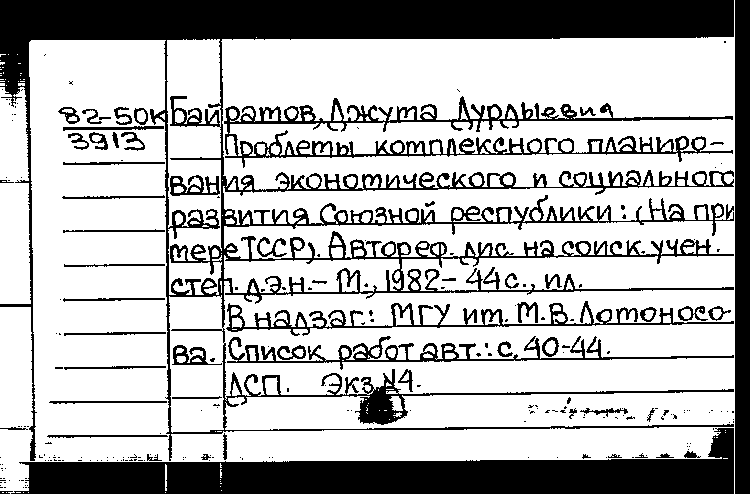 82-50к Байрамов, Джума Дурдыевич
3913 Проблемы комплексного планиро-
вания экономического и социального
развития Союзной республики: (На при
мере ТССР). Автореф. дис. на соиск. учен.
степ. д.э.н. - М., 1982. - 44 с., ил.
В надзаг.: МГУ им. М.В. Ломоносо-
ва. Список работ авт.: с. 40-44.
ДСП. Экз. №4.